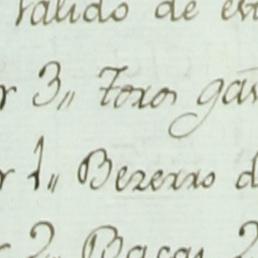 valido de
r 3,, Toros
r 1,, Bezerro d
r 2,, Bacas 2